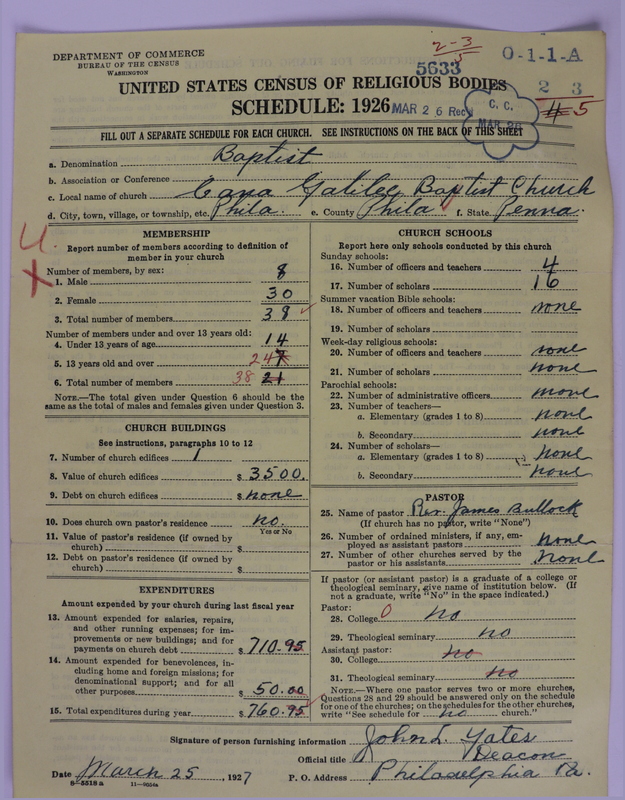 DEPARTMENT OF COMMERCE
BUREAU OF THE CENSUS
WASHINGTON
2-3
5
5633
O-1-1-A
2 3
4 5
UNITED STATES CENSUS OF RELIGIOUS BODIES
SCHEDULE: 1926
MAR 26 Rec'd
C. C.
MAR 26
FILL OUT A SEPARATE SCHEDULE FOR EACH CHURCH. SEE INSTRUCTIONS ON THE BACK OF THIS SHEET
a. Denomination Baptist
b. Association or Conference
c. Local name of church Cana Galilee Baptist Church
d. City, town, village, or township, etc. Phila. e. County Phila f. State Penna.
U.
X
MEMBERSHIP
Report number of members according to definition of
member in your church
Number of members, by sex:
1. Male 8
2. Female 30
3. Total number of members 38
Number of members under and over 13 years old:
4. Under 13 years of age 14
5. 13 years old and over 24 7
6. Total number of members 38 21
NOTE.—The total given under Question 6 should be
same as the total of males and females given under Question 3.
CHURCH BUILDINGS
See instructions, paragraphs 10 to 12
7. Number of church edifices 1
8. Value of church edifices $ 3500.
9. Debt on church edifices $ none
10. Does church own pastor's residence no.
Yes or No
11. Value of pastor's residence (if owned by
church) $
12. Debt on pastor's residence (if owned by
church) $
EXPENDITURES
Amount expended by your church during last fiscal year
13. Amount expended for salaries, repairs,
and other running expenses; for im-
provements or new buildings; and for
payments on church debt $ 710.95
14. Amount expended for benevolences, in-
cluding home and foreign missions; for
denominational support; and for all
other purposes $ 50.00
15. Total expenditures during year $ 760.95
CHURCH SCHOOLS
Report here only schools conducted by this church
Sunday schools:
16. Number of officers and teachers 4
17. Number of scholars 16
Summer vacation Bible schools:
18. Number of officers and teachers none
19. Number of scholars
Week-day religious schools:
20. Number of officers and teachers none
21. Number of scholars none
Parochial schools:
22. Number of administrative officers none
23. Number of teachers—
a. Elementary (grades 1 to 8) none
b. Secondary none
24. Number of scholars—
a. Elementary (grades 1 to 8) none
b. Secondary none
PASTOR
25. Name of pastor Rev. James Bullock
(If church has no pastor, write "None")
26. Number of ordained ministers, if any, em-
ployed as assistant pastors none
27. Number of other churches served by the
pastor or his assistants none
If pastor (or assistant pastor) is a graduate of a college or
theological seminary, give name of institution below. (If
not a graduate, write "No" in the space indicated.)
Pastor:
28. College 0 no
29. Theological seminary no
Assistant pastor:
30. College no
31. Theological seminary no
NOTE.—Where one pastor serves two or more churches,
Questions 28 and 29 should be answered only on the schedule
for one of the churches; on the schedules for the other churches,
write "See schedule for no church."
Signature of person furnishing information John L. Yates
Official title Deacon
Date March 25, 1927 P. O. Address Philadelphia Pa.
8-5518a 11-9034a